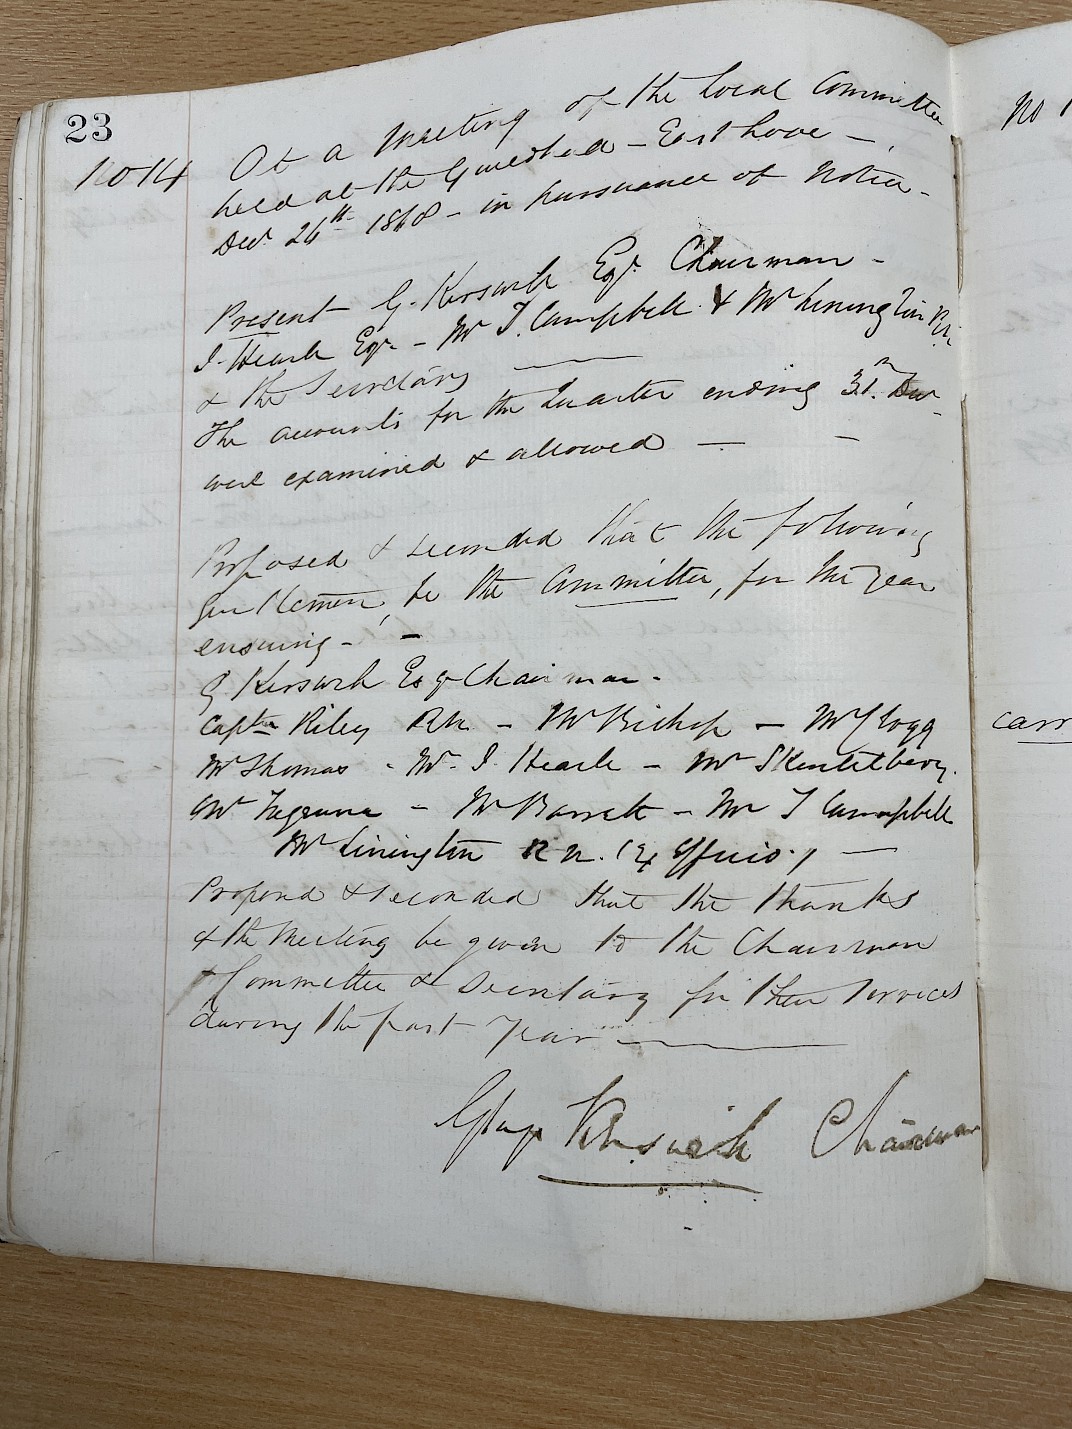 23
No 14
At a Meeting of the Local Committee
held at the Guildhall - East Looe -
Decr 26th 1868 - in pursuance of Notice -
Present G. Kerswill Esqr. Chairman -
J. Hearle Esqr - Mr T. Campbell & Mr Linington RN.
& the Secretary
The accounts for the Quarter ending 31. Decr
were examined & allowed -
Proposed & seconded that the following
Gentlemen, be the Committee, for the year
ensuing - -
G Kerswill Esqr Chairman -
Captn Riley RN - Mr Bishop - Mr Clogg
Mr Thomas - Mr. J. Hearle - Mr Skentelbery.
Mr - Mr Barrett - Mr T Campbell
Mr Linington R N. (Ex Officio.)
Proposed & seconded that the thanks
of the Meeting be given to the Chairman
& Committee & Secretary for their services
during the past year
George Kerswill Chairman
No 1
Carr